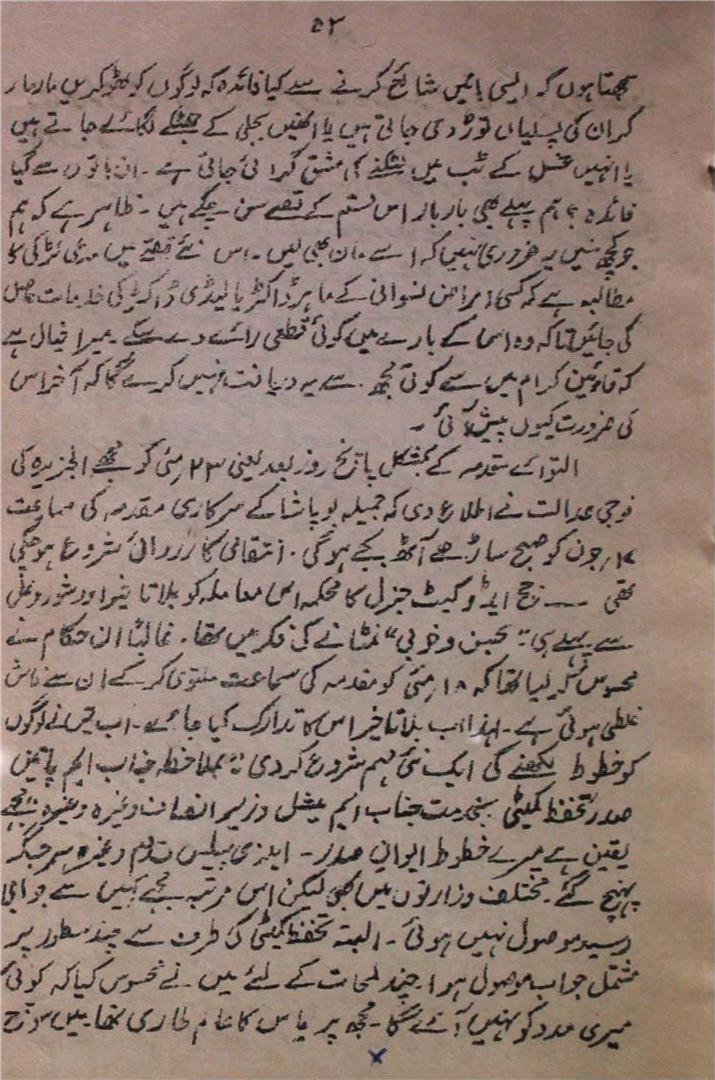 ۵۲
سمجھتا ہوں کہ ایسی باتیں شائع کرنے سے کیا فائدہ کہ لوگوں کو ٹھوکریں مار مار
کر ان کی پسلیاں توڑ دی جاتی ہیں یا انھیں بجلی کے جھٹکے لگائے جاتے ہیں
یا انہیں غسل کے ٹب میں کی مشق کرائی جاتی ہے ۔ ان باتوں سے کیا
فائدہ ؟ ہم پہلے بھی بار بار اس قسم کے قصے سن چکے ہیں ۔ ظاہر ہے کہ ہم
جو کچھ سنیں یہ ضروری نہیں کہ اسے مان بھی لیں ۔ اس نئے قصے میں لڑکی کا
مطالبہ ہے کہ کسی امراض نسوانی کے ماہر ڈاکٹر یا لیڈی ڈاکٹر کی خدمات حاصل
کی جائیں تاکہ وہ اس کے بارے میں کوئی قطعی رائے دے سکے ۔ میرا خیال ہے
کہ قارئین کرام میں سے کوئی مجھ سے یہ دریافت نہیں کرے گا کہ آخر اس
کی ضرورت کیوں پیش آئی ۔
التوائے مقدمہ کے بمشکل پانچ روز بعد یعنی ۲۳ مئی کو مجھے الجزیرہ کی
فوجی عدالت نے اطلاع دی کہ جمیلہ بوپاشا کے سرکاری مقدمہ کی سماعت
۱۷ جون کو صبح ساڑھے آٹھ بجے ہوگی ۔ انتقامی کارروائی شروع ہوچکی
تھی ــــ جج ایڈوکیٹ جنرل کا محکمہ اس معاملہ کو بلا تاخیر اور شور و غل
سے پہلے ہی "بحسن و خوبی" نمٹانے کی فکر میں تھا ۔ غالباً ان حکام نے
محسوس کر لیا تھا کہ ۱۸ مئی کو مقدمہ کی سماعت ملتوی کر کے ان سے فاش
غلطی ہوئی ہے ۔ لہذا اب بلا تاخیر اس کا تدارک کیا جائے ۔ اب میں نے لوگوں
کو خطوط لکھنے کی ایک نئی مہم شروع کر دی " بملاحظہ جناب ایم پاتیں
صدر تحفظ کمیٹی بخدمت جناب ایم میشل وزیر انصاف وغیرہ وغیرہ " مجھے
یقین ہے میرے خطوط ایوان صدر ۔ ایلزی پیلیس وغیرہ ہر جگہ
پہنچ گئے ۔ مختلف وزارتوں میں بھی لیکن اس مرتبہ مجھے کہیں سے جوابی
رسید موصول نہیں ہوئی ۔ البتہ تحفظ کمیٹی کی طرف سے چند سطور پر
مشتمل جواب موصول ہوا چند لمحات کے لئے میں نے محسوس کیا کہ کوئی
میری مدد کو نہیں آئے گا ۔ مجھ پر یاس کا عالم طاری تھا میں سوچ